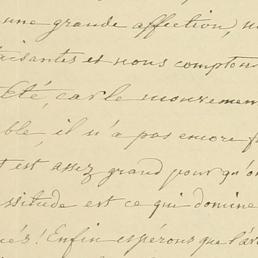 une grande affection, n
aisantes et nous compton
Eté, car le mouvemen
ble, il n'a pas encore f
t est assez grand pour qu'on
ssitude est ce qui domine
és! Enfin espérons que l'ar